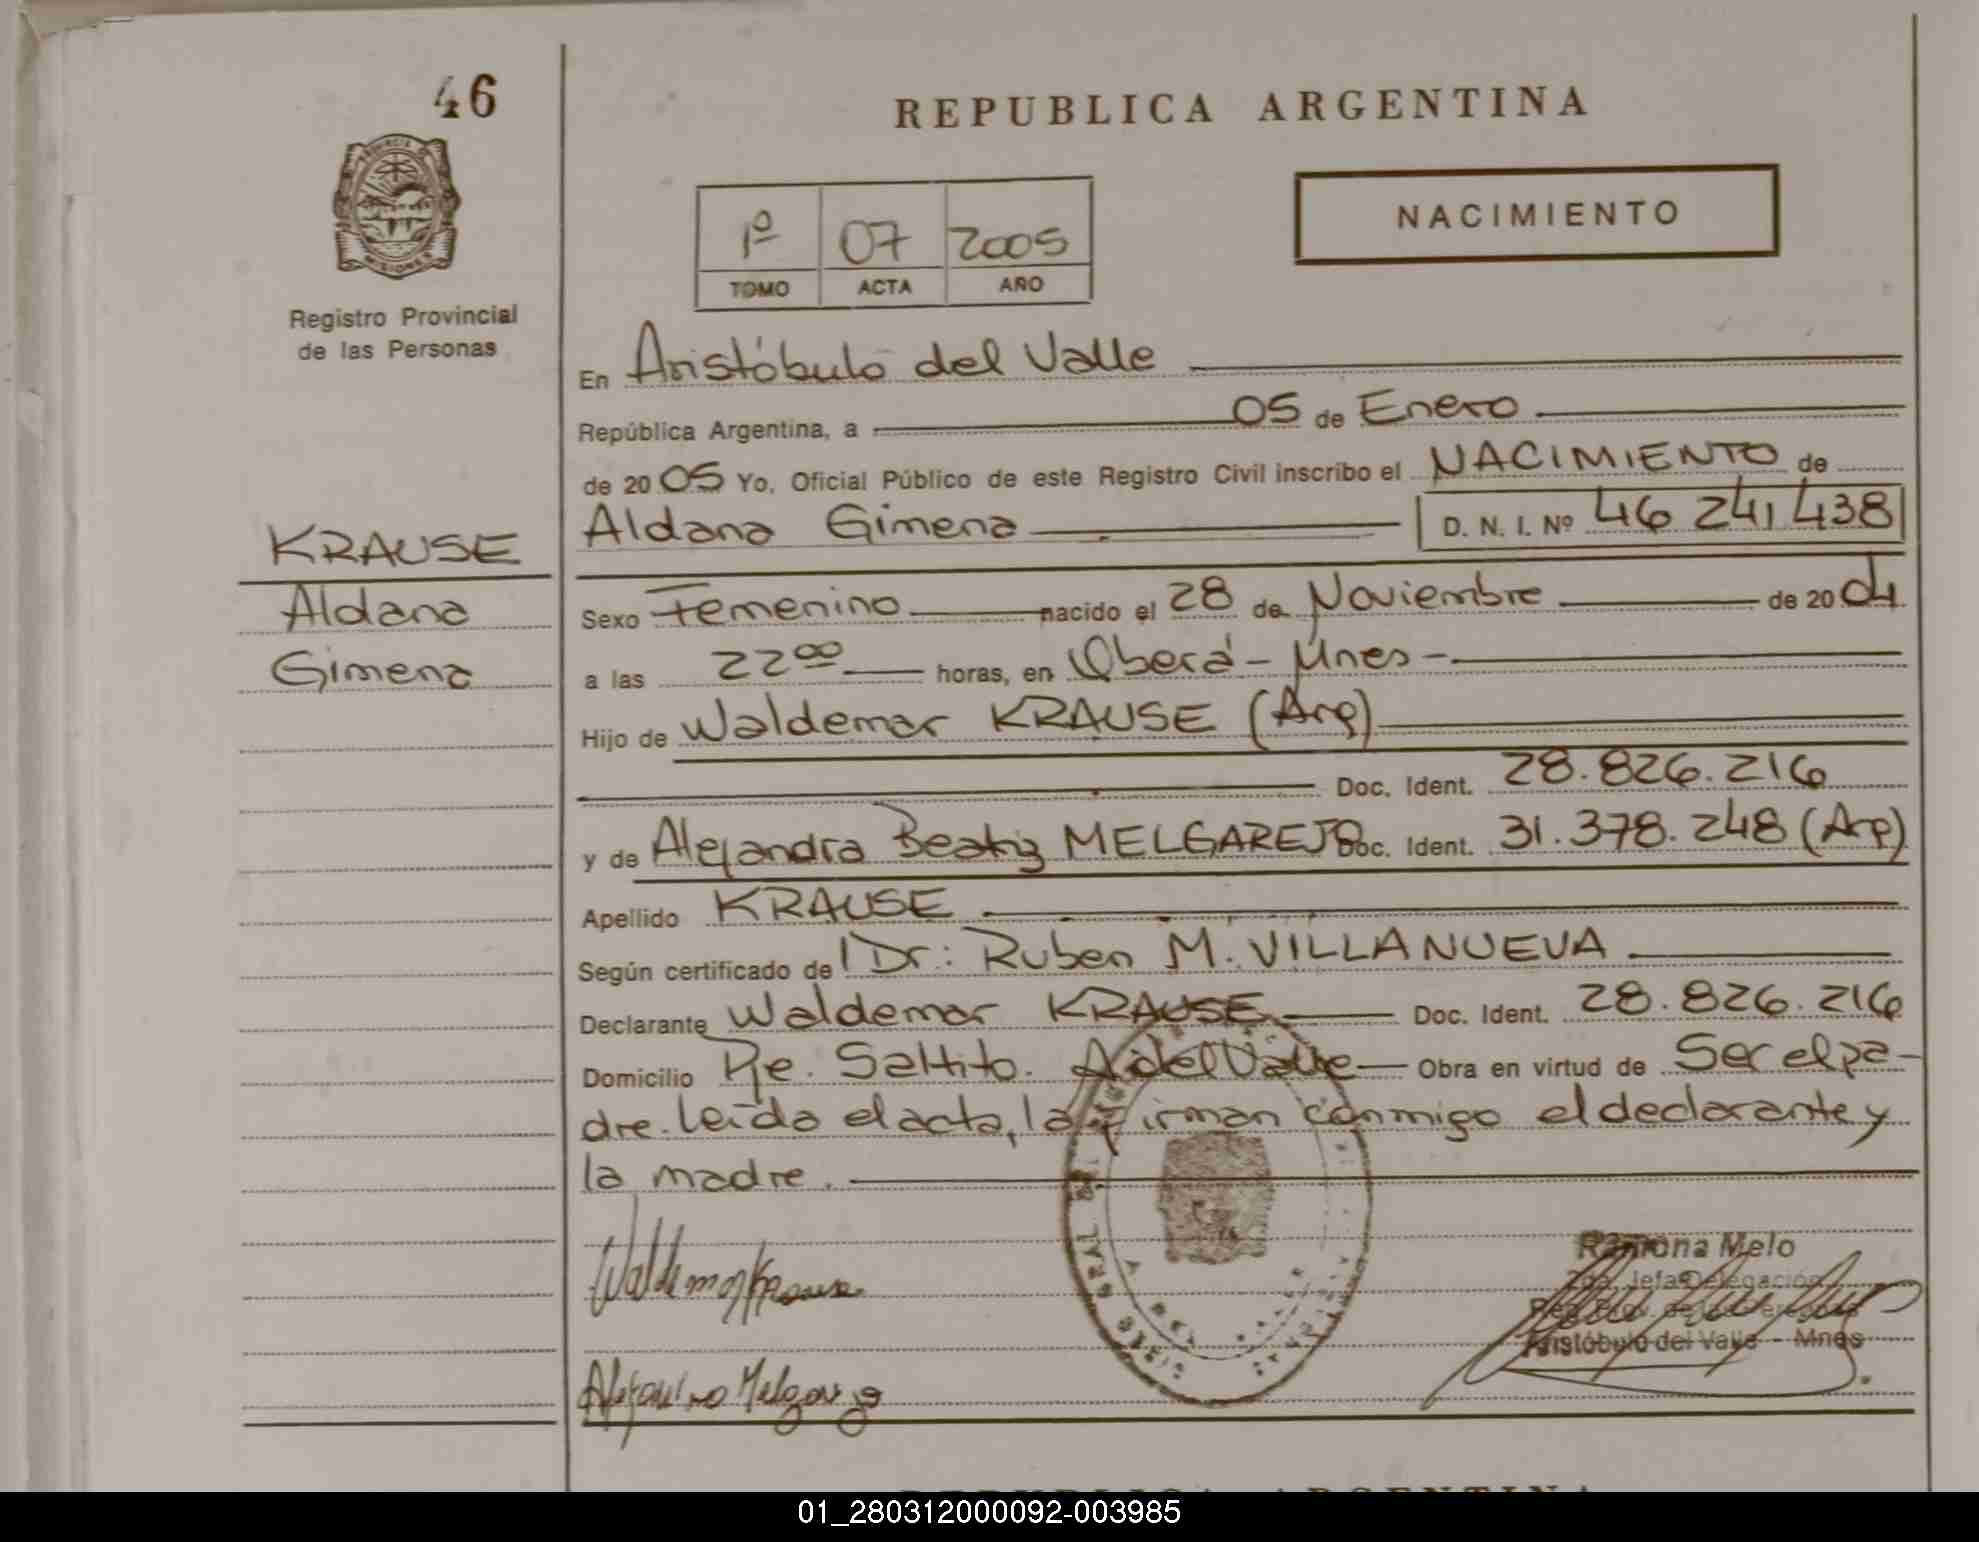 46
REPUBLICA ARGENTINA
PROVINCIA DE
MISIONES
Registro Provincial
de las Personas
1º 07 2005
TOMO ACTA AÑO
NACIMIENTO
En Aristóbulo del Valle
República Argentina, a 05 de Enero
de 2005 Yo, Oficial Público de este Registro Civil inscribo el NACIMIENTO de
Aldana Gimena D. N. I. Nº 46 241 438
KRAUSE
Aldana
Gimena
Sexo Femenino nacido el 28 de Noviembre de 2004
a las 22 00 horas, en Oberá - Mnes -
Hijo de Waldemar KRAUSE (Arg)
Doc. Ident. 28.826.216
y de Alejandra Beatriz MELGAREJO Doc. Ident. 31.378.248 (Arg)
Apellido KRAUSE
Según certificado de Dr: Ruben M. VILLANUEVA
Declarante Waldemar KRAUSE Doc. Ident. 28.826.216
Domicilio Pje. Saltito. A del Valle Obra en virtud de Ser el pa-
dre. Leída el acta, la firman conmigo el declarante y
la madre.
Waldemar Krause
Ramona Melo
2da. Jefa Delegación
Reg. Prov. de las Personas
Aristóbulo del Valle - Mnes
REPUBLICA ARGENTINA
01_280312000092-003985